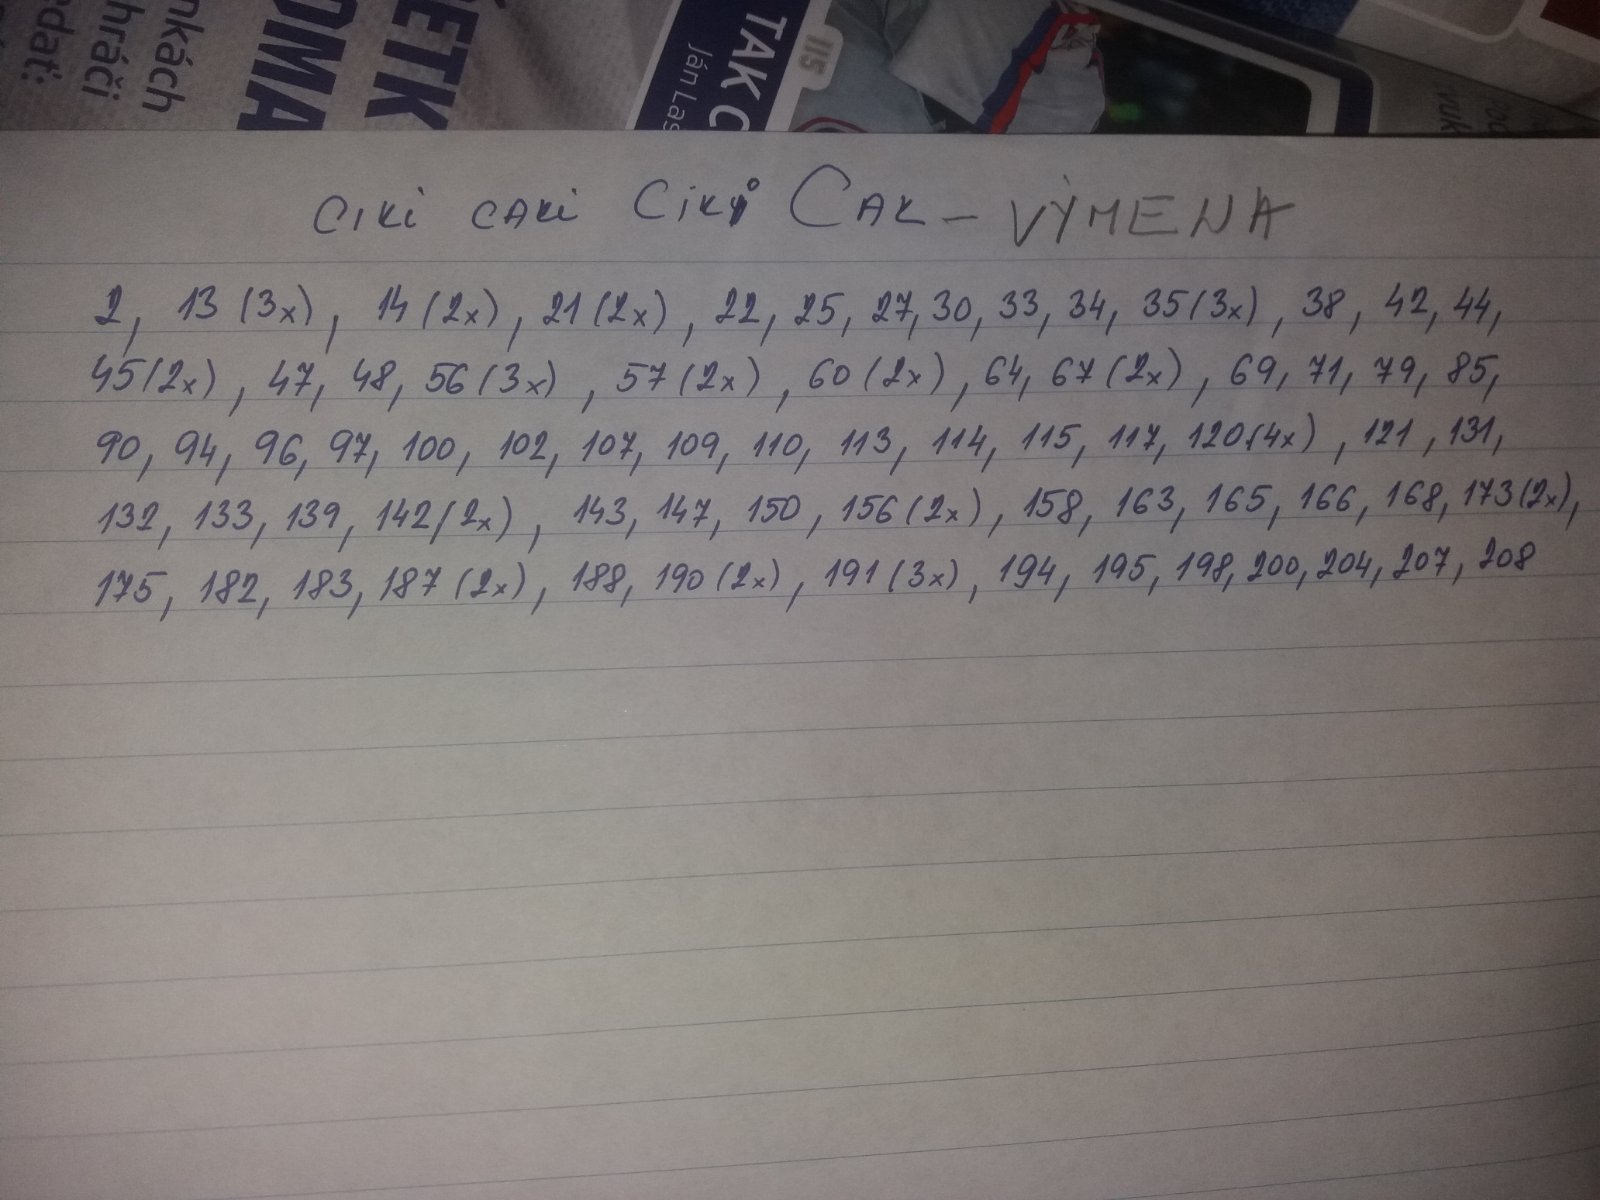 nkách
hráči
edať:
ETK
OMA
TAK C
Ján Las
115
vuk
CIKI CAKI CIKI CAK – VÝMENA
2, 13 (3x), 14 (2x), 21 (2x), 22, 25, 27, 30, 33, 34, 35 (3x), 38, 42, 44,
45 (2x), 47, 48, 56 (3x), 57 (2x), 60 (2x), 64, 67 (2x), 69, 71, 79, 85,
90, 94, 96, 97, 100, 102, 107, 109, 110, 113, 114, 115, 117, 120 (4x), 121, 131,
132, 133, 139, 142 (2x), 143, 147, 150, 156 (2x), 158, 163, 165, 166, 168, 173 (2x),
175, 182, 183, 187 (2x), 188, 190 (2x), 191 (3x), 194, 195, 198, 200, 204, 207, 208